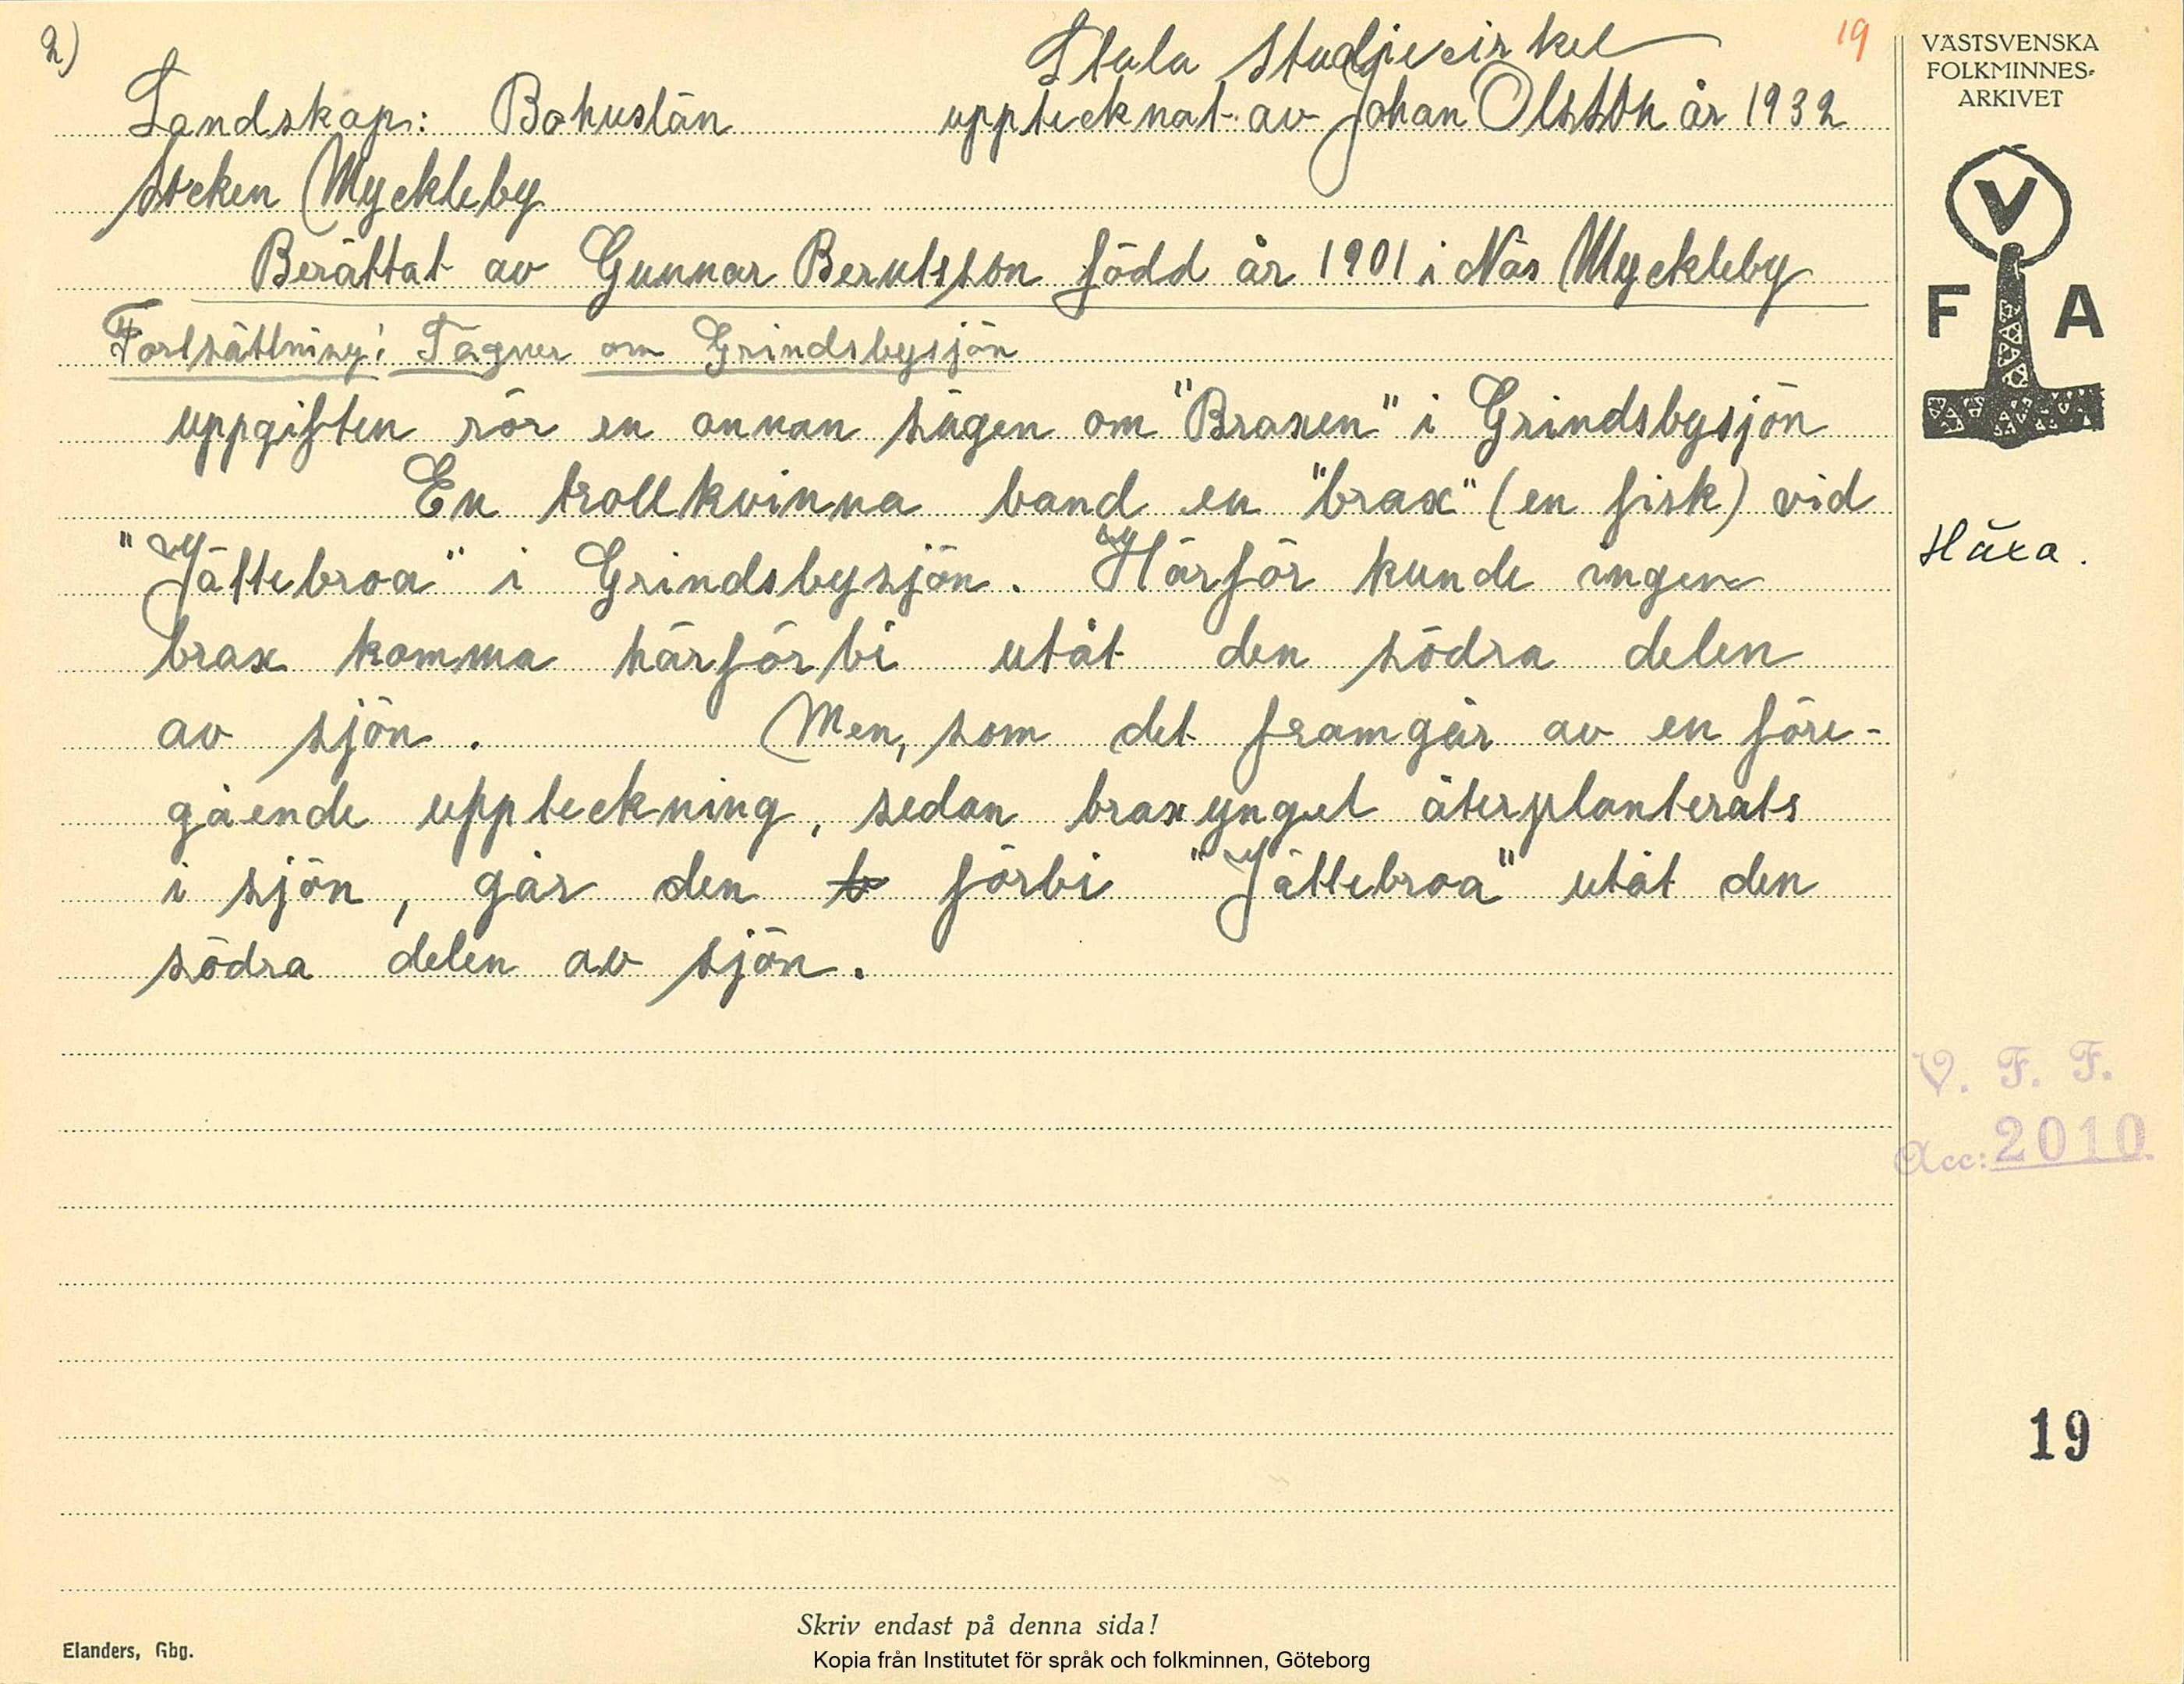 2)
Stala Studiecirkel
19
Landskap: Bohuslän upptecknat av Johan Olsson år 1932
Socken Myckleby
Berättat av Gunnar Berntsson född år 1901 i Näs Myckleby
Fortsättning: Sagner om Grindsbysjön
uppgiften rör en annan sägen om "Braxen" i Grindsbysjön
En trollkvinna band en "brax" (en fisk) vid
"Jättebroa" i Grindsbysjön. Härför kunde ingen
brax komma härförbi utåt den södra delen
av sjön. Men, som det framgår av en före-
gående uppteckning, sedan braxyngel återplanterats
i sjön, går den förbi "Jättebroa" utåt den
södra delen av sjön.
VÄSTSVENSKA
FOLKMINNES-
ARKIVET
V
F A
Häxa.
V. F. F.
Acc: 2010.
19
Skriv endast på denna sida!
Elanders, Gbg.
Kopia från Institutet för språk och folkminnen, Göteborg